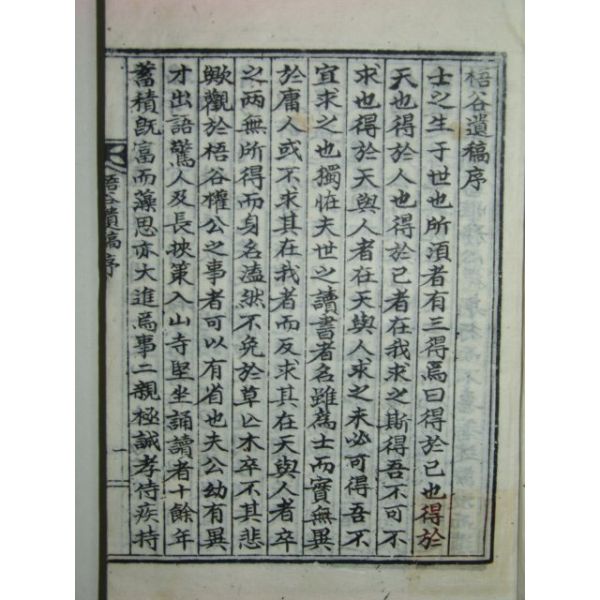 梧谷遺稿序
士之生于世也所須者有三得焉曰得於己也得於
天也得於人也得於己者在我求之斯得吾不可不
求也得於天與人者在天與人求之未必可得吾不
宜求之也獨恠夫世之讀書者名雖爲士而實無異
於庸人或不求其在我者而反求其在天與人者卒
之两無所得而身名溘然不免於草亡木卒不其悲
歟觀於梧谷權公之事者可以有省也夫公幼有異
才出語驚人及長挾策入山寺堅坐誦讀者十餘年
蓄積旣富而藻思亦大進爲事二親極誠孝侍疾持
梧谷遺稿序
一